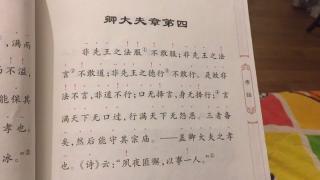 卿大夫章第四
非先王之法服①不敢服；非先王之法
言②不敢道；非先王之德行③不敢行。是故非
法不言，非道不行；口无择言，身无择行；言
满天下无口过，行满天下无怨恶。三者备
矣，然后能守其宗庙。——盖卿大夫之孝
也。《诗》云：“夙夜匪懈，以事一人。”
，满而
不溢，
能保其
也。
冰。”
孝经